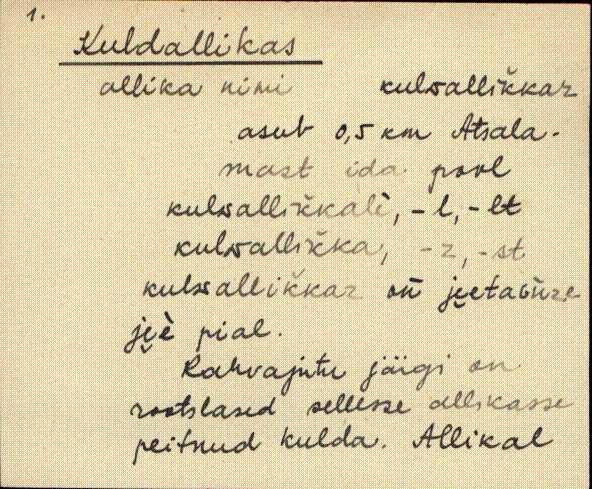 1.
Kuldallikas
allika nimi kulᴅallikkaz
asub 0,5 km Atsala-
mast ida pool
kulᴅallikkalè, -l, -lt
kulᴅallikka, -z, -st
kulᴅallikkaz on
pial.
Rahvajutu järgi on
rootslased sellesse allikasse
peitnud kulda. Allikal